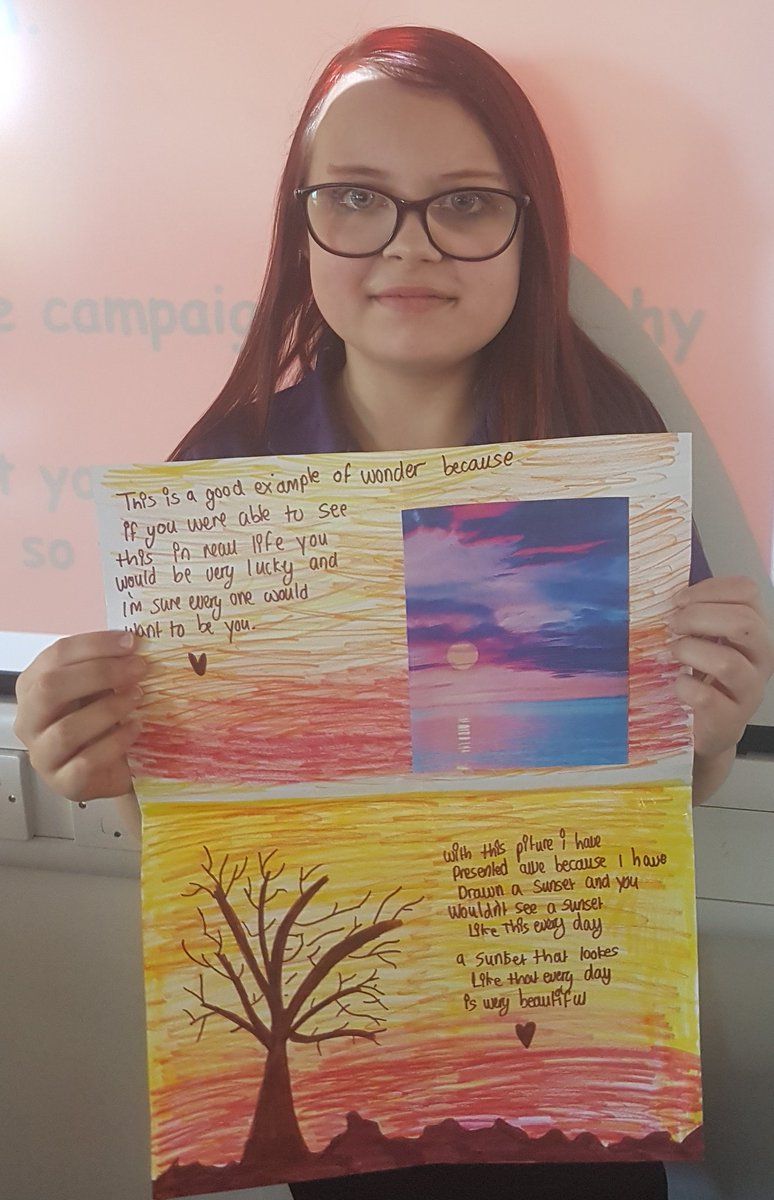 e campaig hy
t ya
so
This is a good example of wonder because
if you were able to see
this in reall life you
would be very lucky and
i'm sure every one would
want to be you.
with this picture i have
Presented awe because I have
Drawn a sunset and you
wouldn't see a sunset
Like this every day
a sunset that lookes
Like that every day
is very beautiful